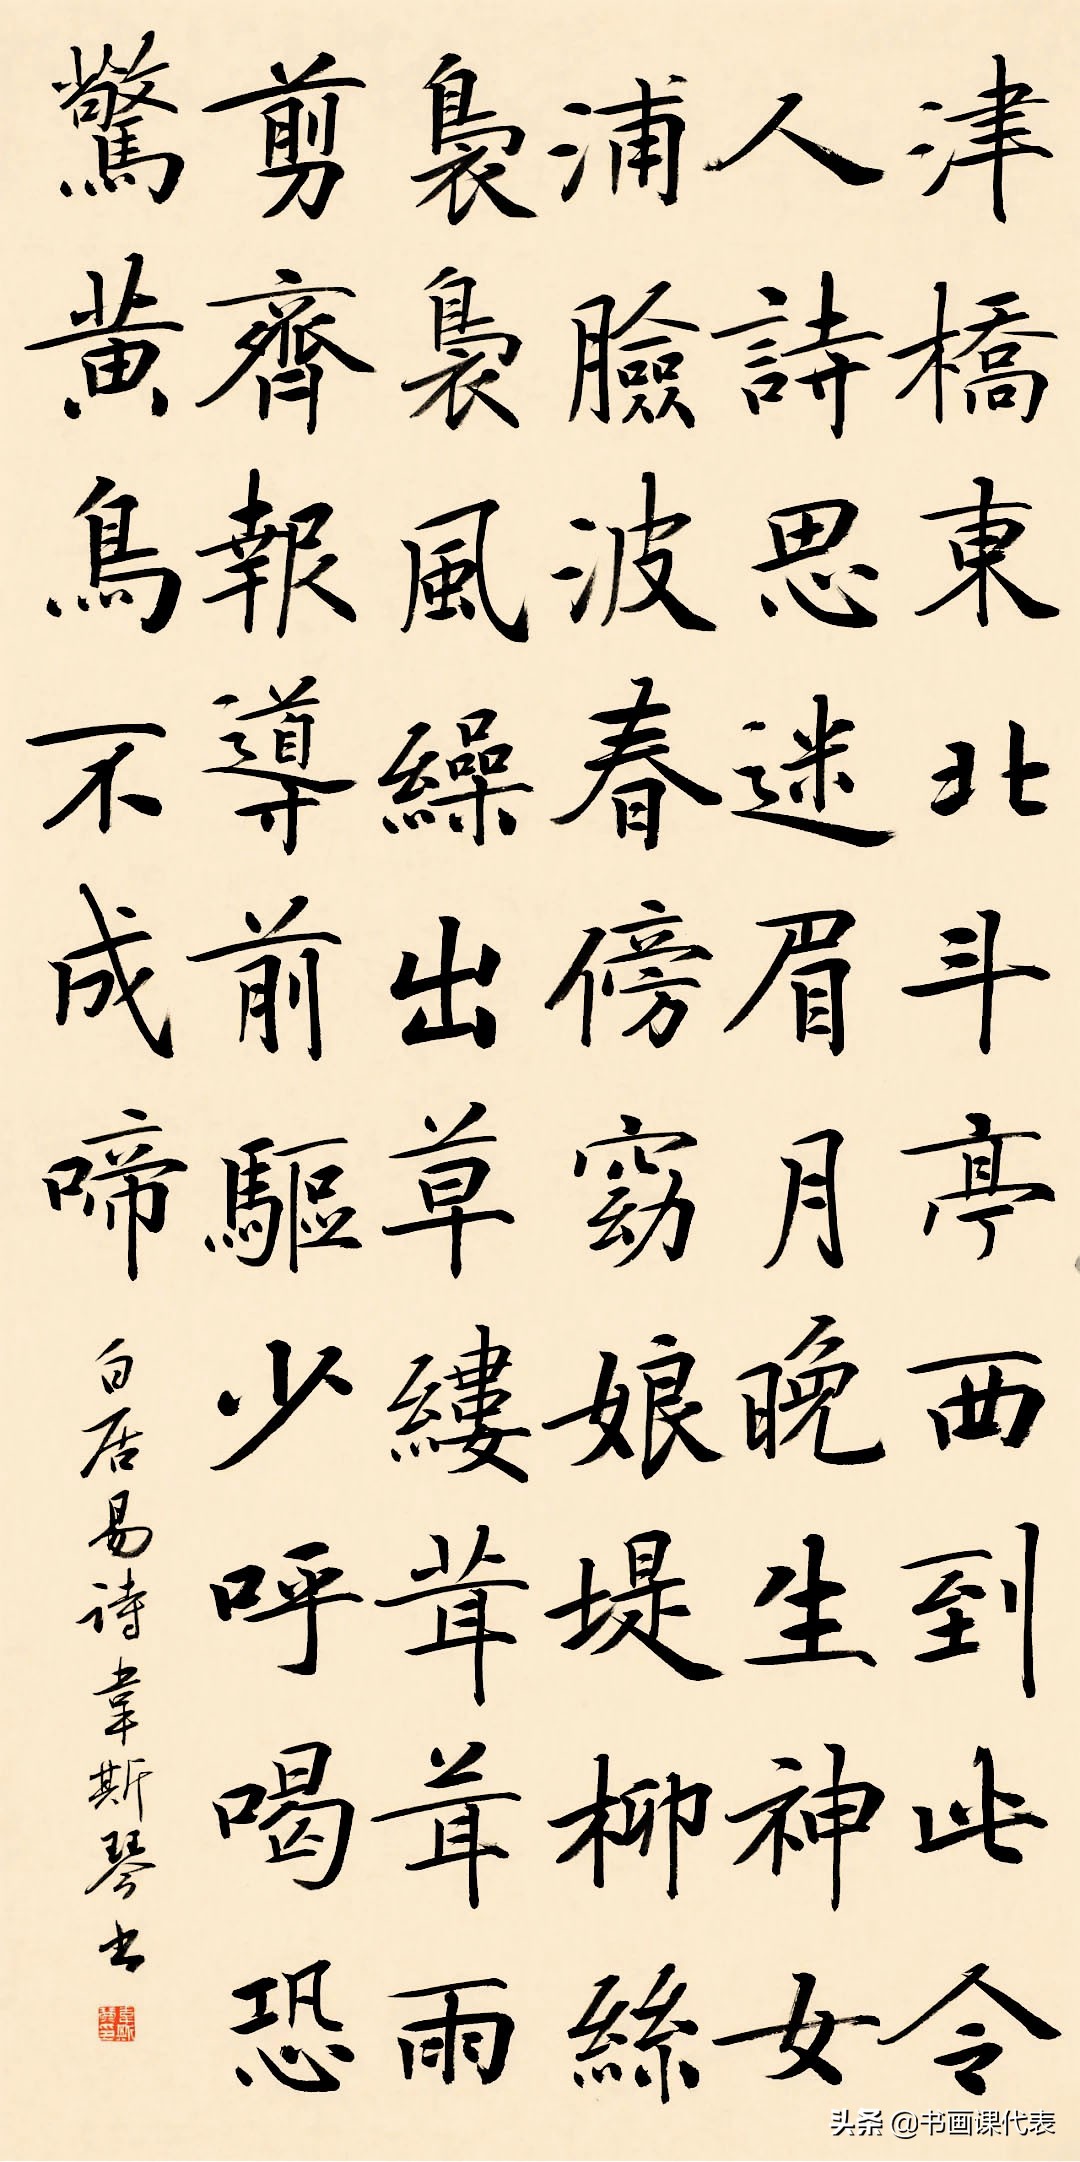 津橋東北斗亭西到此令
人詩思迷眉月晚生神女
浦臉波春傍窈娘堤柳絲
裊裊風繰出草縷茸茸雨
剪齊報導前驅少呼喝恐
驚黃鳥不成啼
白居易诗韋斯琴书
头条 @书画课代表